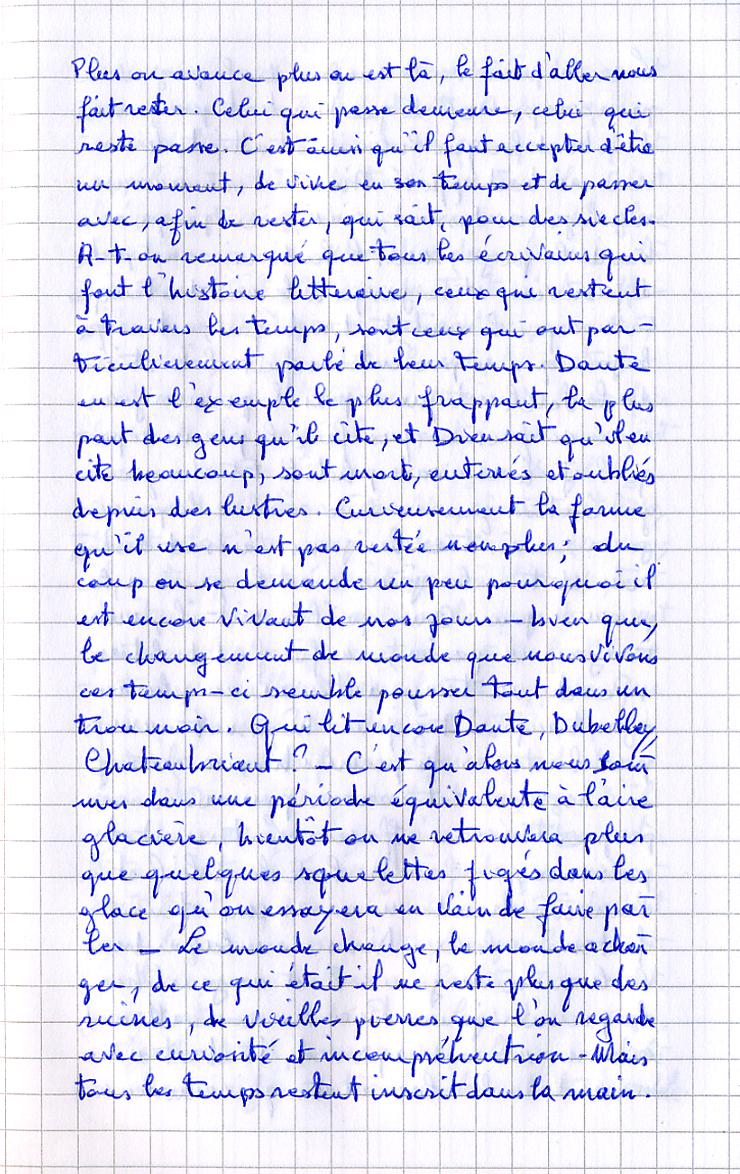 Plus on avance plus on est là, le fait d'aller nous
fait rester. Celui qui passe demeure, celui qui
reste passe. C'est ainsi qu'il faut accepter d'être
un moment, de vivre en son temps et de passer
avec, afin de rester, qui sait, pour des siècles.
A-t-on remarqué que tous les écrivains qui
font l'histoire litteraire, ceux qui restent
à travers les temps, sont ceux qui ont par-
ticulierement parlé de leur temps. Dante
en est l'exemple le plus frappant, la plus
part des gens qu'il cite, et Dieu sait qu'il en
cite beaucoup, sont mort, enterrés et oubliés
depuis des lustres. Curieusement la forme
qu'il use n'est pas restée non plus; du
coup on se demande un peu pourquoi il
est encore vivant de nos jours - bien que,
le changement de monde que nous vivons
ces temps-ci semble pousser tout dans un
trou noir. Qui lit encore Dante, Dubellay,
Chateaubriant ? - C'est qu'alors nous som
mes dans une période équivalente à l'aire
glacière, bientôt on ne retrouvera plus
que quelques squelettes figés dans les
glace qu'on essayera en vain de faire par
ler - Le monde change, le monde a chan
ger, de ce qui était il ne reste plus que des
ruines, de vieilles pierres que l'on regarde
avec curiosité et incompréhention - Mais
tous les temps restent inscrit dans la main.